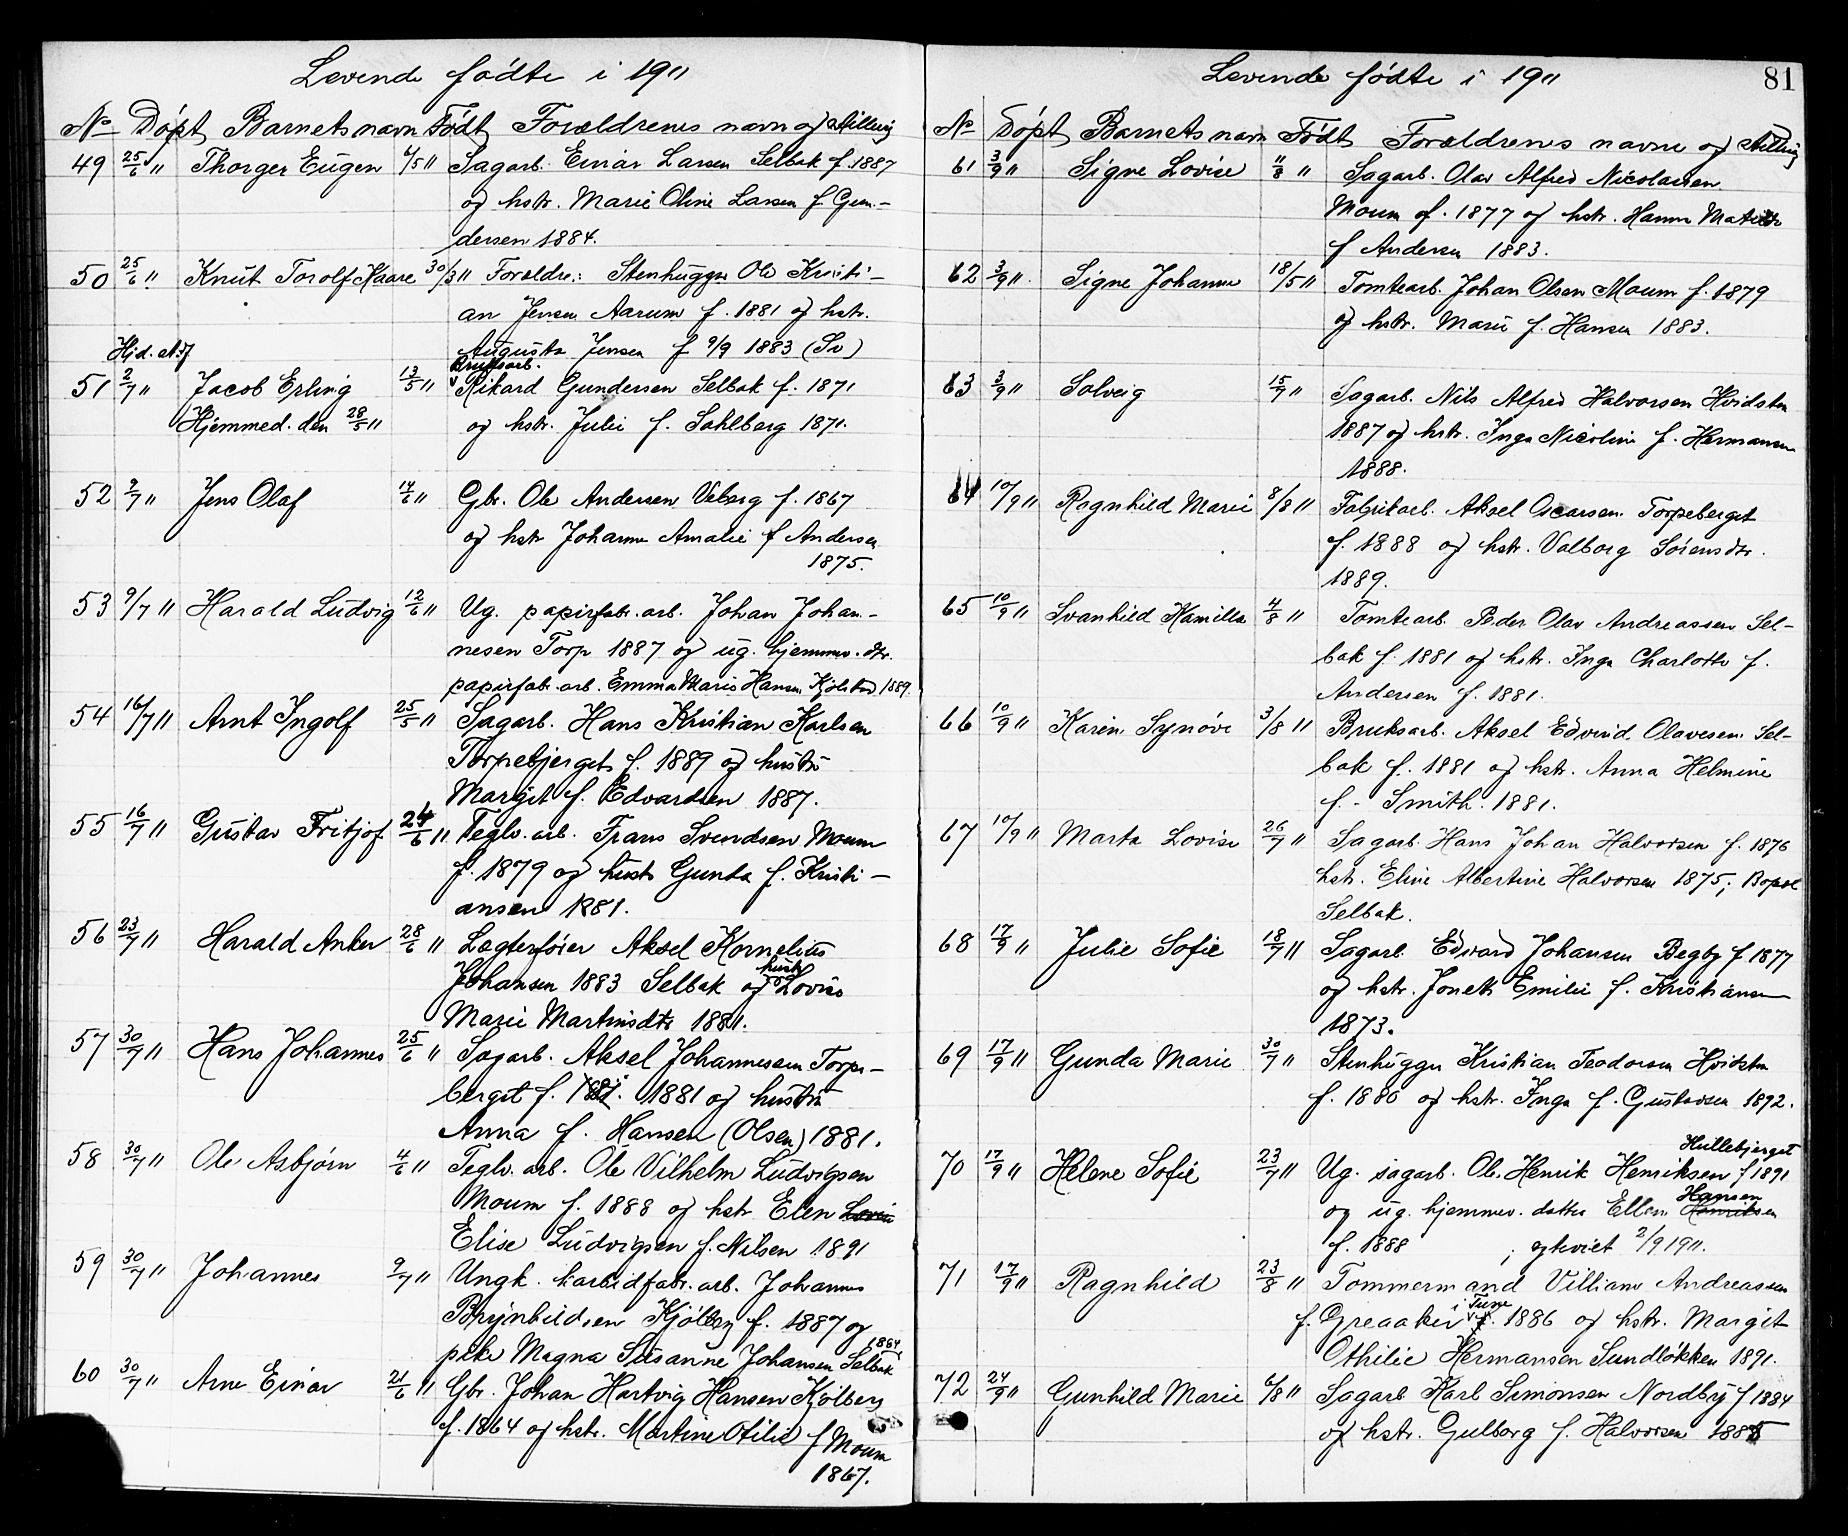 Levende fødte i 1911
No Döpt Barnets navn Födt Forældrenes navn og stilling
49 25/6 11 Thorger Eugen 4/5 11 Sagarb. Einar Larsen Selbak f. 1887
og hstr. Marie Oline Larsen f. Gun-
dersen 1884.
50 25/6 11 Knut Torolf Kaare 30/3 11 Forældre: Stenhugger Ole Kristi-
an Jensen Aarum f. 1881 og hstr.
Augusta Jensen f 9/9 1883 (Sv)
Hjd.
Bruksarb.
51 2/7 11 Jacob Erling 13/5 11 Rikard Gundersen Selbak f. 1871
Hjemmed. den 28/5 11 og hstr. Julie f. Sahlberg 1871.
52 2/7 11 Jens Olaf 14/6 11 Gbr. Ole Andersen Veberg f. 1867
og hstr Johanne Amalie f Andersen
1875.
53 9/7 11 Harald Ludvig 12/6 11 Ug. papirfabr. arb. Johan Johan-
nesen Torp 1887 og ug. hjemmev. dtr.
papirfabr. arb. Emma Marie Hansen 1889.
54 16/7 11 Arnt Ingolf 25/5 11 Sagarb. Hans Kristian Karlsen
Torpebjerget f. 1889 og hustru
Margit f. Edvardsen 1887.
55 16/7 11 Gustav Fritjof 24/6 11 Teglv. arb. Frans Svendsen Moum
f. 1879 og hustr Gunda f. Kristi-
ansen 1881.
56 23/7 11 Harald Anker 28/6 11 Lægterfører Aksel Kornelius
Johansen 1883 Selbak og hustr Lovise
Marie Martinsdtr 1881.
57 30/7 11 Hans Johannes 25/6 11 Sagarb. Aksel Johannessen Torpe-
berget f. 1881 og hustru
Anna f. Hansen (Olsen) 1881.
58 30/7 11 Ole Asbjørn 4/6 11 Teglv. arb. Ole Vilhelm Ludvigsen
Moum f. 1888 og hstr Elen
Elise Ludvigsen f. Nilsen 1891
59 30/7 11 Johannes 9/7 11 Ungk. karbidfabr. arb. Johannes
Brynhildsen Kjölberg f. 1887 og
pike Magna Susanne Johansen Selbak 1864
60 30/7 11 Arne Einar 21/6 11 Gbr. Johan Hartvig Hansen Kjölberg
f. 1864 og hstr. Martine Otilie f Moum
1867.
81
Levende fødte i 1911
No Döpt Barnets navn Födt Forældrenes navne og stilling
61 3/9 11 Signe Lovise 11/8 11 Sagarb. Olav Alfred Nicolaisen
Moum f. 1877 og hstr. Hanna Matilde
f Andersen 1883.
62 3/9 11 Signe Johanne 18/5 11 Tomtearb. Johan Olsen Moum f. 1879
og hstr. Marie f. Hansen 1883.
63 3/9 11 Solveig 15/7 11 Sagarb. Nils Alfred Halvorsen Hvidsten
1887 og hstr. Inga Nicoline f. Hermansen
1888.
64 10/9 11 Ragnhild Marie 8/8 11 Fabrikarb. Aksel Oscarsen Torpeberget
f. 1888 og hstr. Valborg Sörensdtr.
1889.
65 10/9 11 Svanhild Kamilla 4/8 11 Tomtearb. Peder Olav Andreassen Sel-
bak f. 1881 og hstr. Inga Charlotte f.
Andersen f. 1881.
66 10/9 11 Karen Synöve 3/8 11 Bruksarb. Aksel Edvind Olavesen Sel-
bak f. 1881 og hstr. Anna Helmine
f. - Smith. 1881.
67 10/9 11 Marta Lovise 26/7 11 Sagarb. Hans Johan Halvorsen f. 1876
hstr. Eline Albertine Halvorsen 1875; Bopæl
Selbak.
68 17/9 11 Julie Sofie 18/7 11 Sagarb. Edvard Johansen Begby f 1877
og hstr. Jonette Emilie f. Kristiansen
1873.
69 17/9 11 Gunda Marie 30/7 11 Stenhugger Kristian Teodorsen Hvidsten
f. 1886 og hstr. Inga f. Gustavsen 1892.
Hullebjerget
70 17/9 11 Helene Sofie 23/7 11 Ug. sagarb. Ole Henrik Henriksen f 1891
og ug. hjemmev. datter Ellen Hansen Henriksen
f. 1888 ; egteviet 2/9 1911.
71 17/9 11 Ragnhild 23/8 11 Tømmermand Villiam Andreassen
f. Greaaker i Tune f. 1886 og hstr. Margit
Othilie Hermansen Sundlökken 1891.
72 24/9 11 Gunhild Marie 6/8 11 Sagarb Karl Simonsen Nordby f 1884
og hstr. Gulborg f. Halvorsen 1885